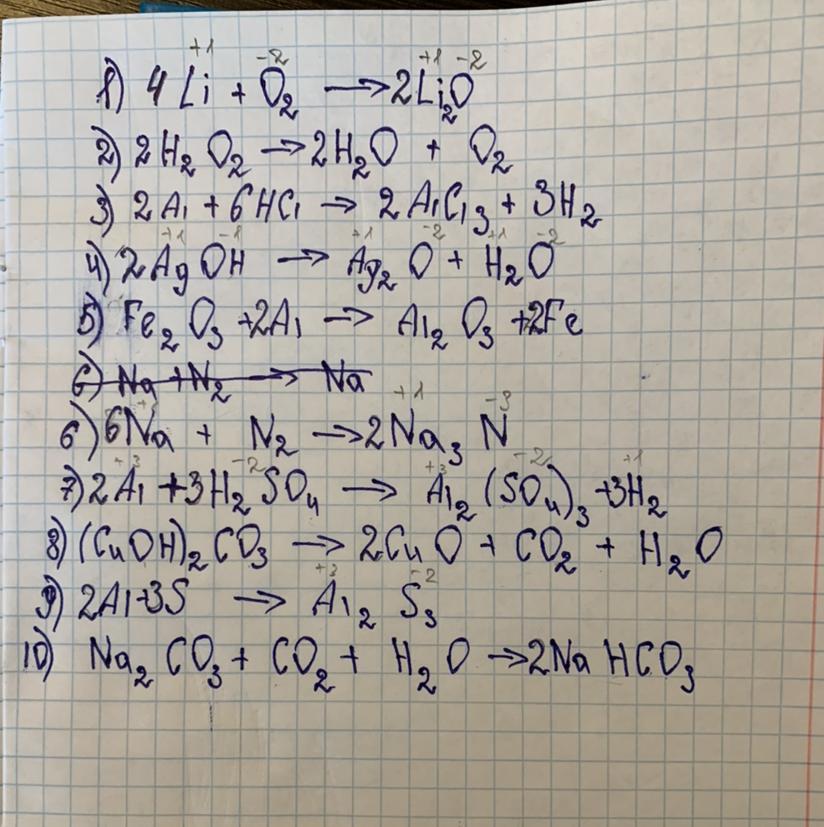 +1 -2 +1 -2
1) 4Li + O₂ → 2Li₂O
2) 2H₂O₂ → 2H₂O + O₂
3) 2Al + 6HCl → 2AlCl₃ + 3H₂
+1 -1 +1 -2 +1 -2
4) 2AgOH → Ag₂O + H₂O
5) Fe₂O₃ + 2Al → Al₂O₃ + 2Fe
6) Na + N₂ → Na
+1 -3
6) 6Na + N₂ → 2Na₃N
+3 -2 +3 -2 +1
7) 2Al + 3H₂SO₄ → Al₂(SO₄)₃ + 3H₂
8) (CuOH)₂CO₃ → 2CuO + CO₂ + H₂O
+3 -2
9) 2Al + 3S → Al₂S₃
10) Na₂CO₃ + CO₂ + H₂O → 2NaHCO₃